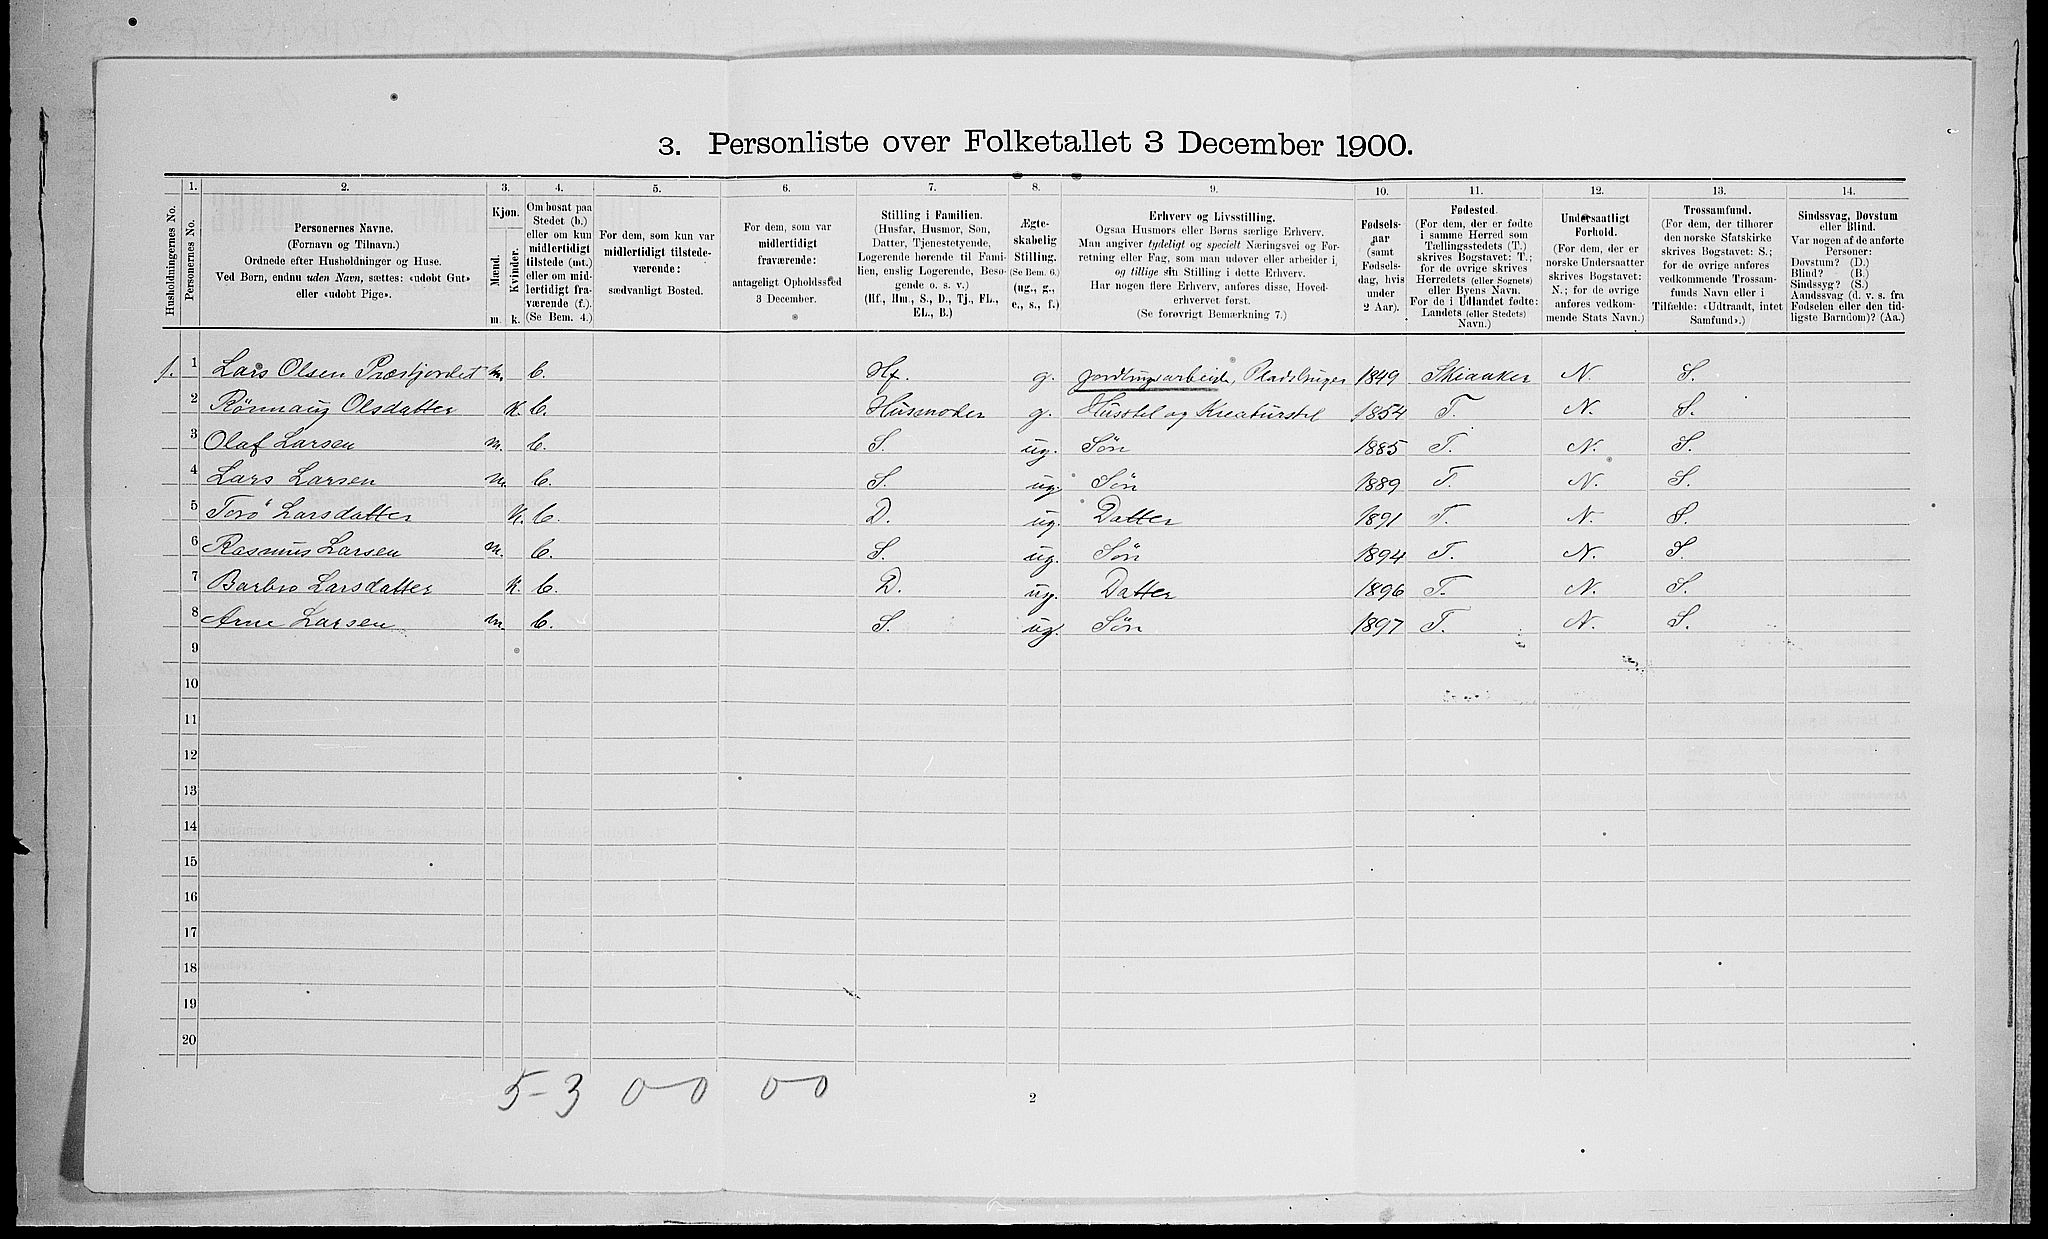 3. Personliste over Folketallet 3 December 1900.
Husholdningernes No.
1. Personernes No.
2. Personernes Navne.
(Fornavn og Tilnavn.)
Ordnede efter Husholdninger og Huse.
Ved Børn, endnu uden Navn, sættes: «udøbt Gut»
eller «udøbt Pige».
3. Kjøn.
Mænd. Kvinder.
m. k.
4. Om bosat paa
Stedet (b.)
eller om kun
midlertidigt
tilstede (mt.)
eller om mid-
lertidigt fra-
værende (f.).
(Se Bem. 4.)
5. For dem, som kun var
midlertidigt tilstede-
værende:
sædvanligt Bosted.
6. For dem, som var
midlertidigt
fraværende:
antageligt Opholdssted
3 December.
7. Stilling i Familien.
(Husfar, Husmor, Søn,
Datter, Tjenestetyende,
Logerende hørende til Fami-
lien, enslig Logerende, Besø-
gende o. s. v.)
(Hf., Hm., S., D., Tj., FL.,
EL., B.)
8. Ægte-
skabelig
Stilling.
(Se Bem. 6.)
(ug., g.,
e., s., f.)
9. Erhverv og Livsstilling.
Ogsaa Husmors eller Børns særlige Erhverv.
Man angiver tydeligt og specielt Næringsvei og For-
retning eller Fag, som man udøver eller arbeider i,
og tillige sin Stilling i dette Erhverv.
Har nogen flere Erhverv, anføres disse, Hoved-
erhvervet først.
(Se forøvrigt Bemærkning 7.)
10. Fødsels-
aar
(samt
Fødsels-
dag, hvis
under
2 Aar).
11. Fødested.
(For dem, der er fødte
i samme Herred som
Tællingsstedets (T.)
skrives Bogstavet: T.;
for de øvrige skrives
Herredets (eller Sognets)
eller Byens Navn.
For de i Udlandet fødte:
Landets (eller Stedets)
Navn.)
12. Undersaatligt
Forhold.
(For dem, der er
norske Undersaatter
skrives Bogstavet:
N.; for de øvrige
anføres vedkom-
mende Stats Navn.)
13. Trossamfund.
(For dem, der tilhører
den norske Statskirke
skrives Bogstavet: S.;
for de øvrige anføres
vedkommende Trossam-
funds Navn eller i
Tilfælde: «Udtraadt, intet
Samfund».)
14. Sindssvag, Døvstum
eller Blind.
Var nogen af de anførte
Personer:
Døvstum? (D.)
Blind? (B.)
Sindssyg? (S.)
Aandssvag (d. v. s. fra
Fødselen eller den tid-
ligste Barndom)? (Aa.)
1. 1 Lars Olsen Præstjordet m. b. Hf. g. Pladsbruger 1849 Skiaaker N. S.
2 Rönnaug Olsdatter k. b. Husmoder g. Husstel og Kreaturstel 1854 T. N. S.
3 Olaf Larsen m. b. S. ug. Søn 1885 T. N. S.
4 Lars Larsen m. b. S. ug. Søn 1889 T. N. S.
5 Torö Larsdatter k. b. D. ug. Datter 1891 T. N. S.
6 Rasmus Larsen m. b. S. ug. Søn 1894 T. N. S.
7 Barbro Larsdatter k. b. D. ug. Datter 1896 T. N. S.
8 Arne Larsen m. b. S. ug. Søn 1897 T. N. S.
9
10
11
12
13
14
15
16
17
18
19
20
5-3 0-0 0-0
2